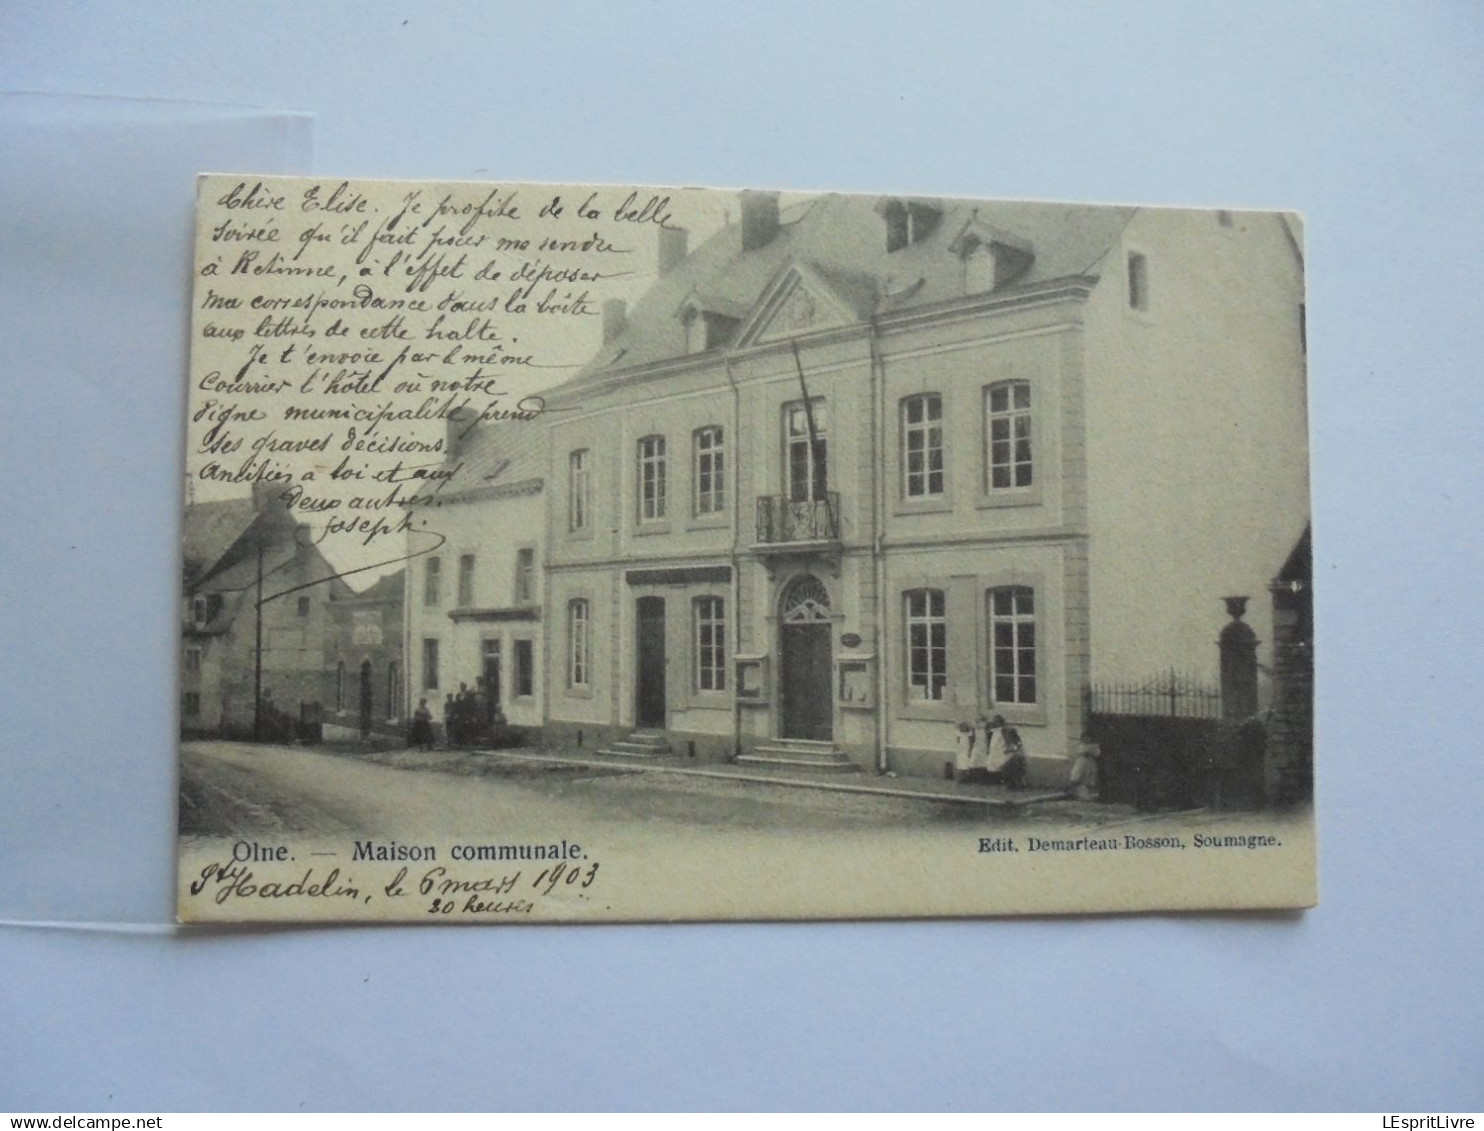 Chère Elise. Je profite de la belle
soirée qu'il fait pour me rendre
à Retinne, à l'effet de déposer
ma correspondance dans la boîte
aux lettres de cette halte.
Je t'envoie par le même
courrier l'hôtel où notre
digne municipalité prend
ses graves décisions.
Amitiés à toi et aux
deux autres.
Joseph.
Olne. — Maison communale.
Edit. Demarteau-Bosson, Soumagne.
St Hadelin, le 6 mars 1903
20 heures
delcampe.net
LEspritLivre